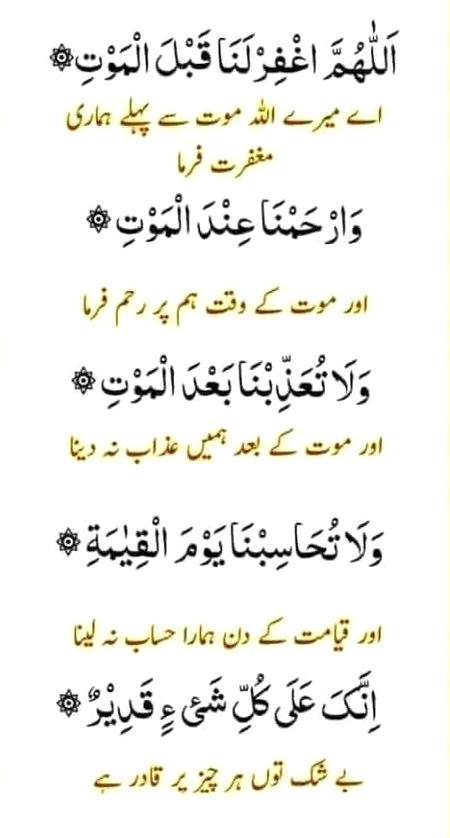 اَللّٰهُمَّ اغْفِرْ لَنَا قَبْلَ الْمَوْتِ۞
اے میرے اللہ موت سے پہلے ہماری
مغفرت فرما
وَارْحَمْنَا عِنْدَ الْمَوْتِ۞
اور موت کے وقت ہم پر رحم فرما
وَلَا تُعَذِّبْنَا بَعْدَ الْمَوْتِ۞
اور موت کے بعد ہمیں عذاب نہ دینا
وَلَا تُحَاسِبْنَا يَوْمَ الْقِيٰمَةِ۞
اور قیامت کے دن ہمارا حساب نہ لینا
اِنَّکَ عَلَی کُلِّ شَیْءٍ قَدِیْرٌ۞
بے شک توں ہر چیز پر قادر ہے